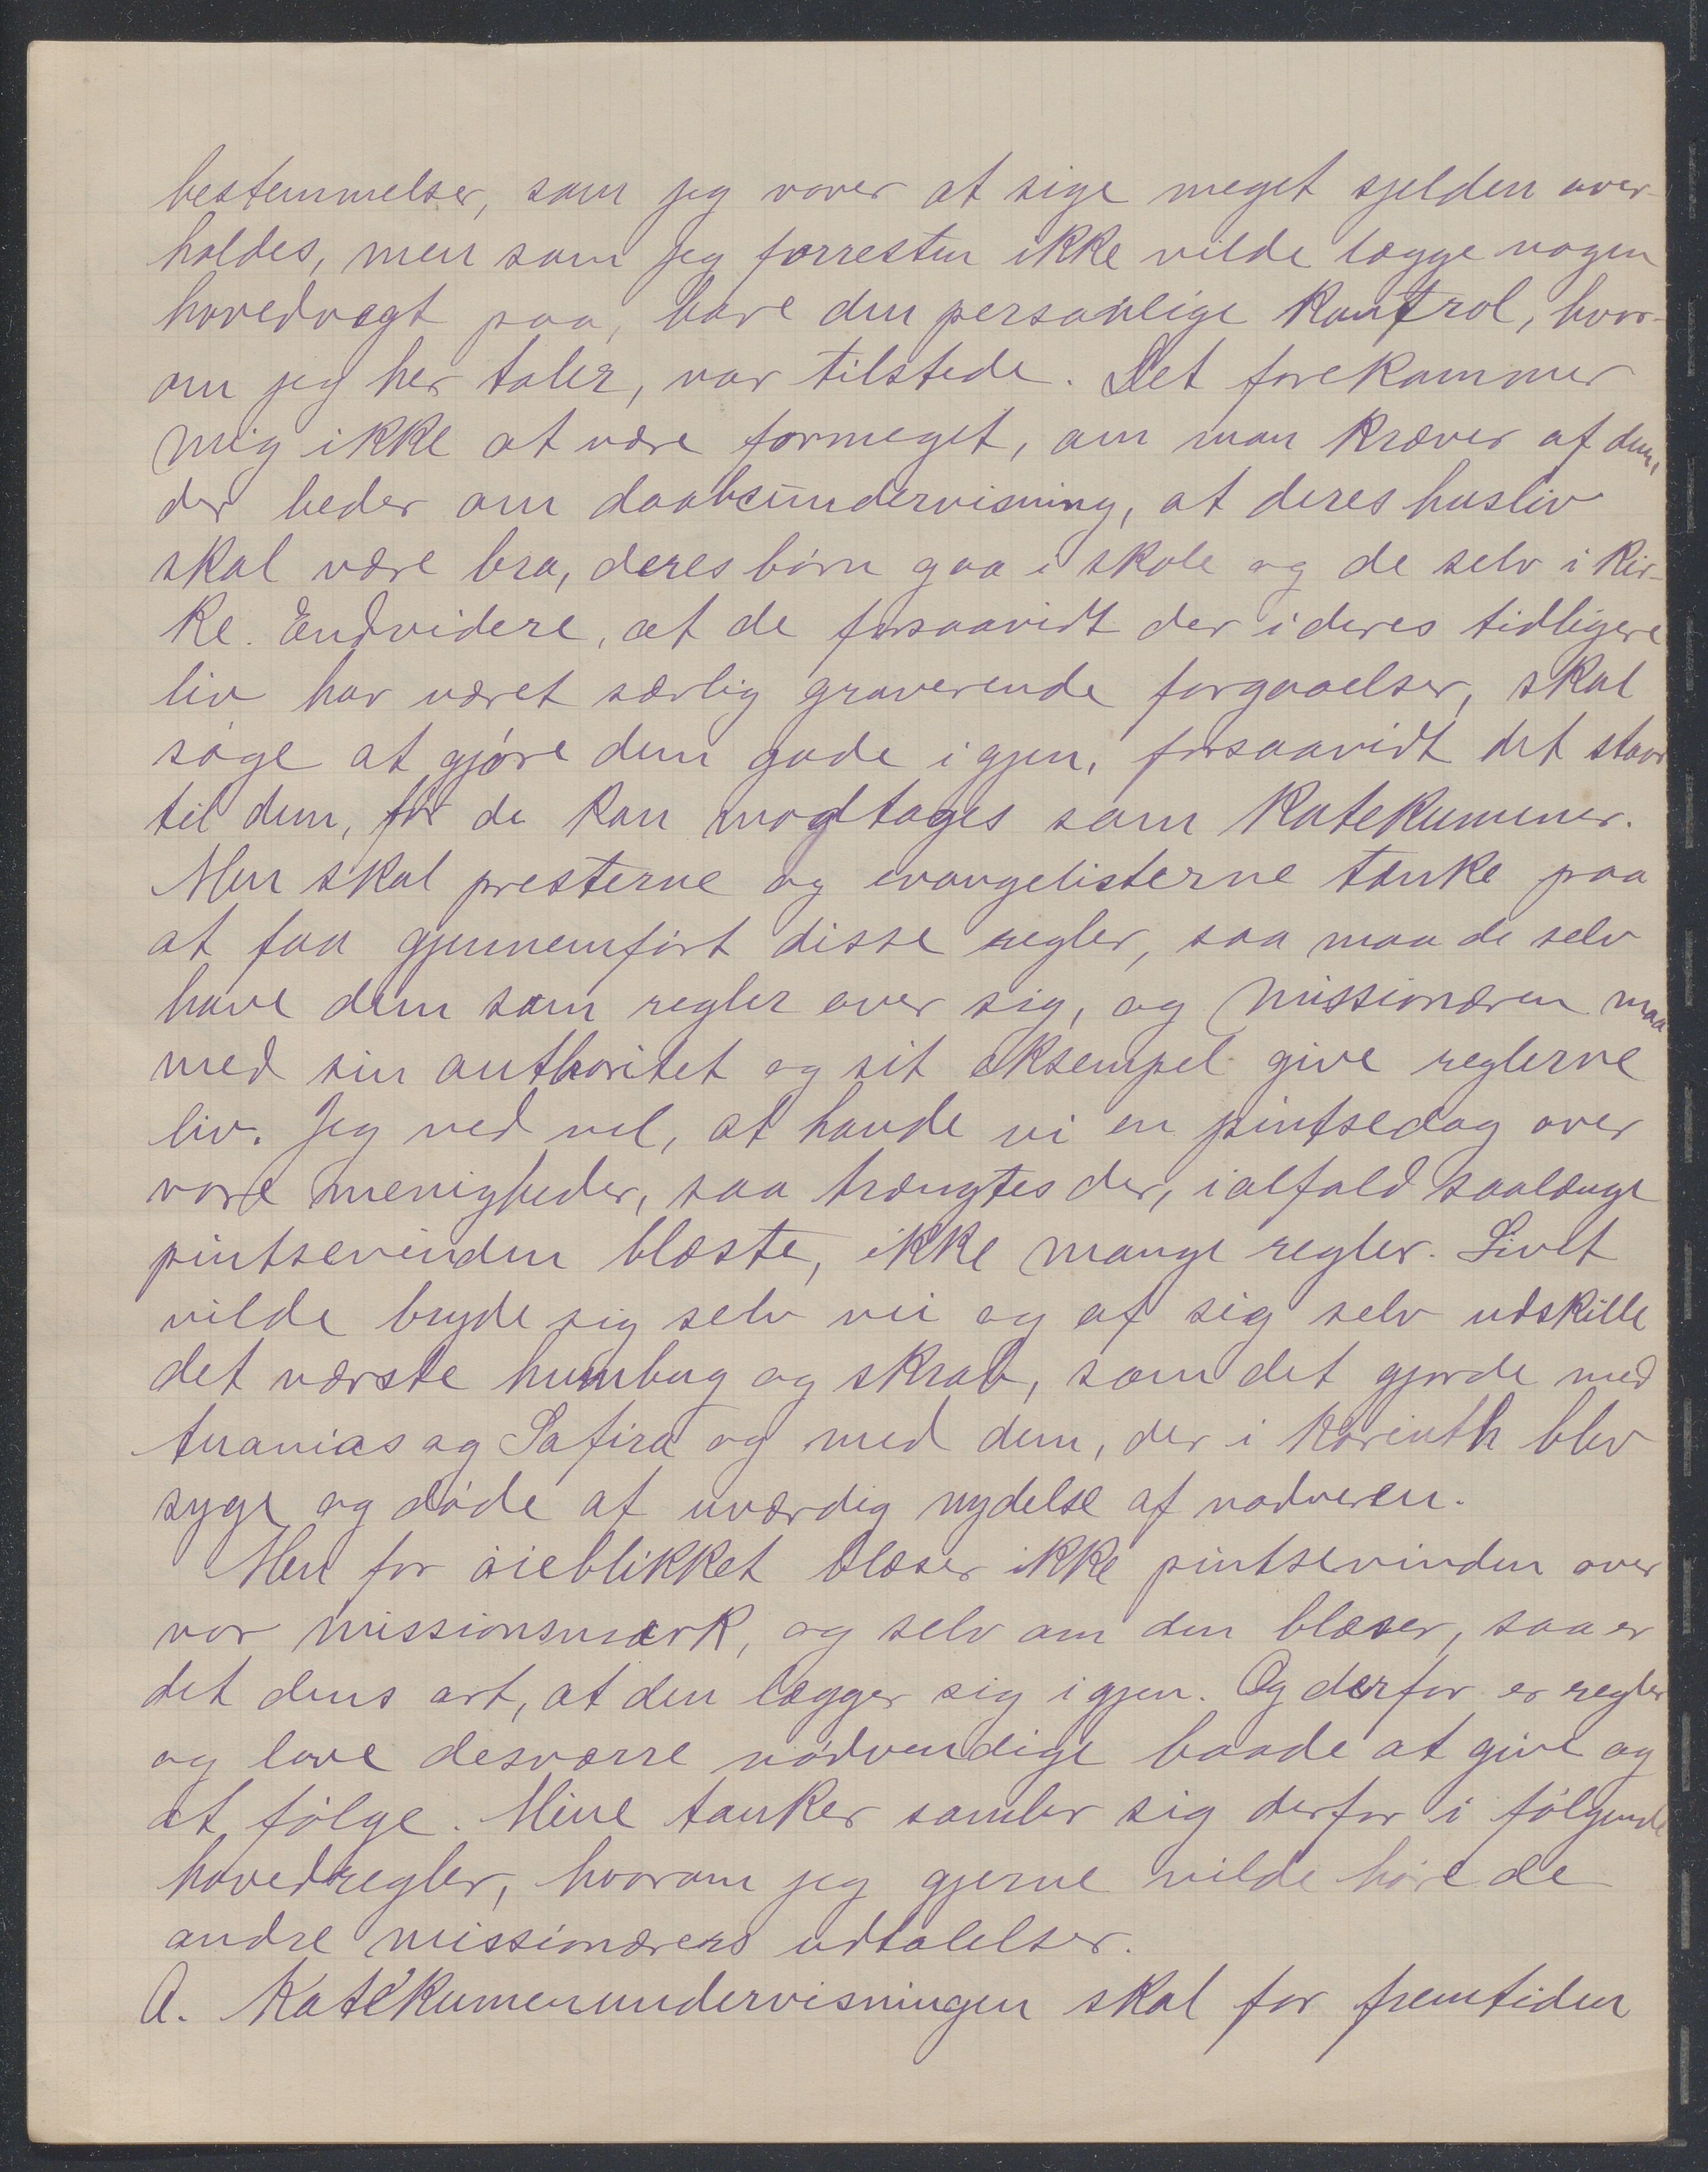 bestemmelser, som jeg vover at sige meget sjelden over-
holdes, men som jeg forresten ikke vilde lægge nogen
hovedvægt paa, bare den personlige kontrol, hvor-
om jeg her taler, var tilstede. Det forekommer
mig ikke at være formeget, om man kræver af dem,
der beder om daabsundervisning, at deres husliv
skal være bra, deres børn gaa i skole og de selv i kir-
ke. Endvidere, at de forsaavidt der i deres tidligere
liv har været særlig graverende forgaaelser, skal
søge at gjøre dem gode igjen, forsaavidt det staar
til dem, før de kan modtages som katekumener.
Men skal presterne og evangelisterne tænke paa
at faa gjennemført disse regler, saa maa de selv
have dem som regler over sig, og missionæren maa
med sin authoritet og sit eksempel give reglerne
liv. Jeg ved vel, at havde vi en pintsedag over
vore menigheder, saa trængtes der, ialfald saalænge
pintsevinden blæste, ikke mange regler. Livet
vilde bryde sig selv vei og af sig selv udskille
det værste humbug og skrab, som det gjorde med
Ananias og Safira og med dem, der i Korinth blev
syge og døde af uværdig nydelse af nadveren.
Men for øieblikket blæser ikke pintsevinden over
vor missionsmark, og selv om den blæser, saa er
det dens art, at den lægger sig igjen. Og derfor er regler
og love desværre nødvendige baade at give og
at følge. Mine tanker samler sig derfor i følgende
hovedregler, hvorom jeg gjerne vilde høre de
andre missionærers udtalelser.
A. Katekumenundervisningen skal for fremtiden